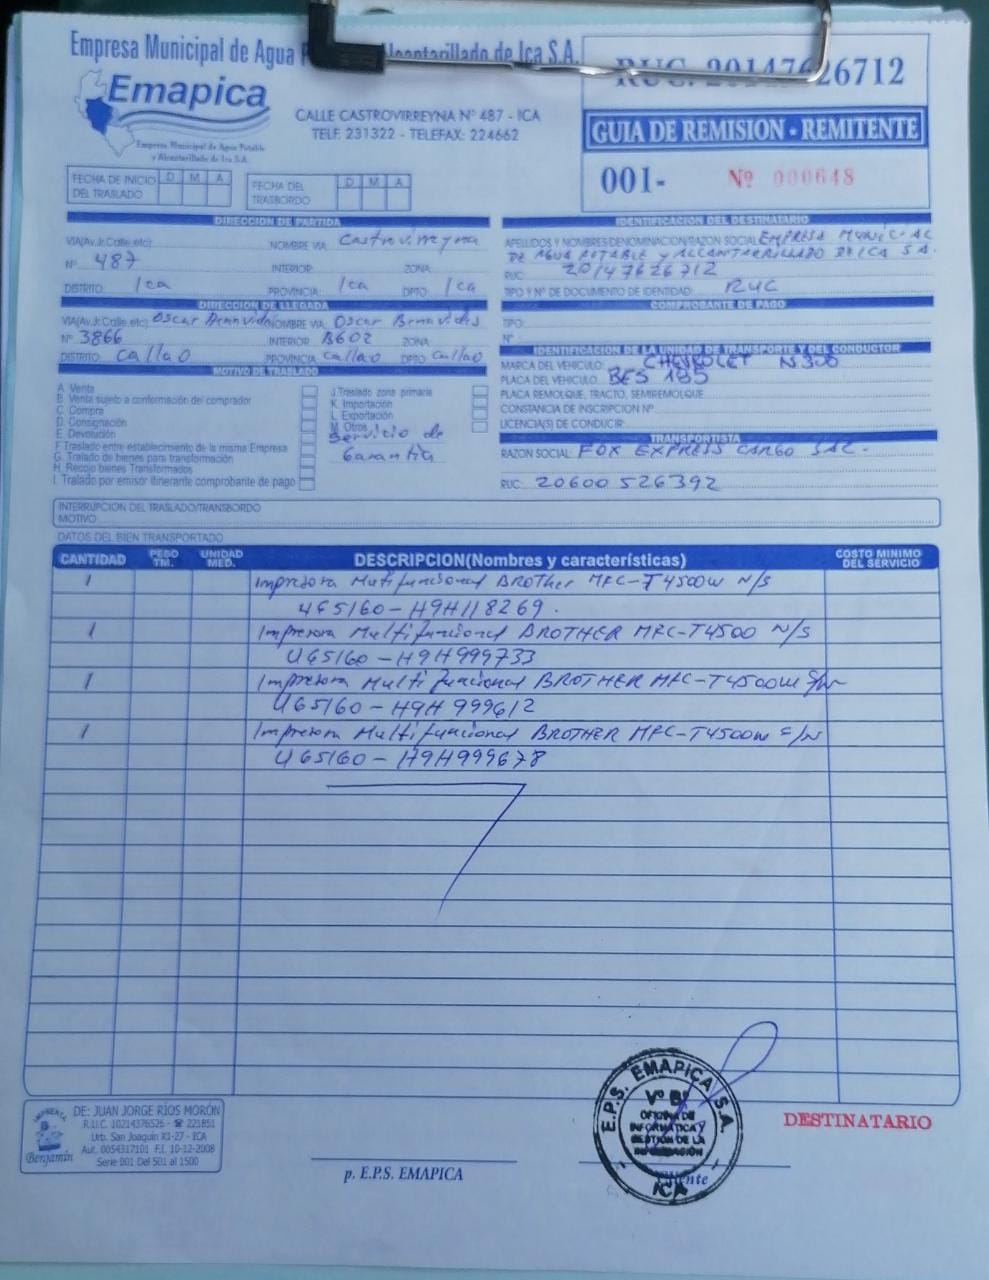 Empresa Municipal de Agua P Alcantarillado de Ica S.A.
Emapica
Empresa Municipal de Agua Potable
y Alcantarillado de Ica S.A.
CALLE CASTROVIRREYNA Nº 487 - ICA
TELF. 231322 - TELEFAX: 224662
RUC. 20147626712
GUIA DE REMISION - REMITENTE
001- Nº 000648
FECHA DE INICIO DEL TRASLADO D M A
FECHA DEL TRASBORDO D M A
DIRECCION DE PARTIDA
VIA(Av.Jr.Calle.etc) NOMBRE VIA: Castrovirreyna
Nº 487 INTERIOR: ZONA:
DISTRITO: Ica PROVINCIA: Ica DPTO: Ica
DIRECCION DE LLEGADA
VIA(Av.Jr.Calle.etc) Oscar Benavides NOMBRE VIA: Oscar Benavides
Nº 3866 INTERIOR: B602 ZONA:
DISTRITO: Callao PROVINCIA: Callao DPTO: Callao
MOTIVO DE TRASLADO
A. Venta
B. Venta sujeto a conformación del comprador
C. Compra
D. Consignación
E. Devolución
F. Traslado entre establecimiento de la misma Empresa
G. Tralado de bienes para transformación
H. Recojo bienes Transformados
I. Tralado por emisor itinerante comprobante de pago
J. Traslado zona primaria
K. Importación
L. Exportación
M. Otros
Servicio de
Garantia
IDENTIFICACION DEL DESTINATARIO
APELLIDOS Y NOMBRES/DENOMINACION/RAZON SOCIAL: EMPRESA MUNICIPAL
DE AGUA POTABLE y ALCANTARRILLADO DE ICA S.A.
RUC: 20147626712
TIPO Y Nº DE DOCUMENTO DE IDENTIDAD: RUC
COMPROBANTE DE PAGO
TIPO:
Nº
IDENTIFICACION DE LA UNIDAD DE TRANSPORTE Y DEL CONDUCTOR
MARCA DEL VEHICULO: CHEVROLET N300
PLACA DEL VEHICULO: BES 185
PLACA REMOLQUE, TRACTO, SEMIREMOLQUE
CONSTANCIA DE INSCRIPCION Nº
LICENCIA(S) DE CONDUCIR:
TRANSPORTISTA
RAZON SOCIAL: FOX EXPRESS CARGO SAC.
RUC: 20600526392
INTERRUPCION DEL TRASLADO/TRANSBORDO
MOTIVO
DATOS DEL BIEN TRANSPORTADO
CANTIDAD PESO TM. UNIDAD MED. DESCRIPCION(Nombres y características) COSTO MINIMO DEL SERVICIO
1 Impresora Mutifuncional BROTHER MFC-T4500W N/S
U65160-H9H118269.
1 Impresora Multifuncional BROTHER MFC-T4500 N/S
U65160-H9H999733
1 Impresora Multifuncional BROTHER MFC-T4500W
U65160-H9H999612
1 Impresora Multifuncional BROTHER MFC-T4500W
U65160-H9H999678
IMPRENTA
Benjamín
DE: JUAN JORGE RIOS MORÓN
R.U.C. 10214376526 - ☎ 221851
Urb. San Joaquin X1-27 - ICA
Aut. 0054317101 F.I. 10-12-2008
Serie 001 Del 501 al 1500
p. E.P.S. EMAPICA
E.P.S. EMAPICA S.A.
Vº Bº
OFICINA DE
INFORMATICA Y
GESTION DE LA
INFORMACIÓN
ICA
DESTINATARIO